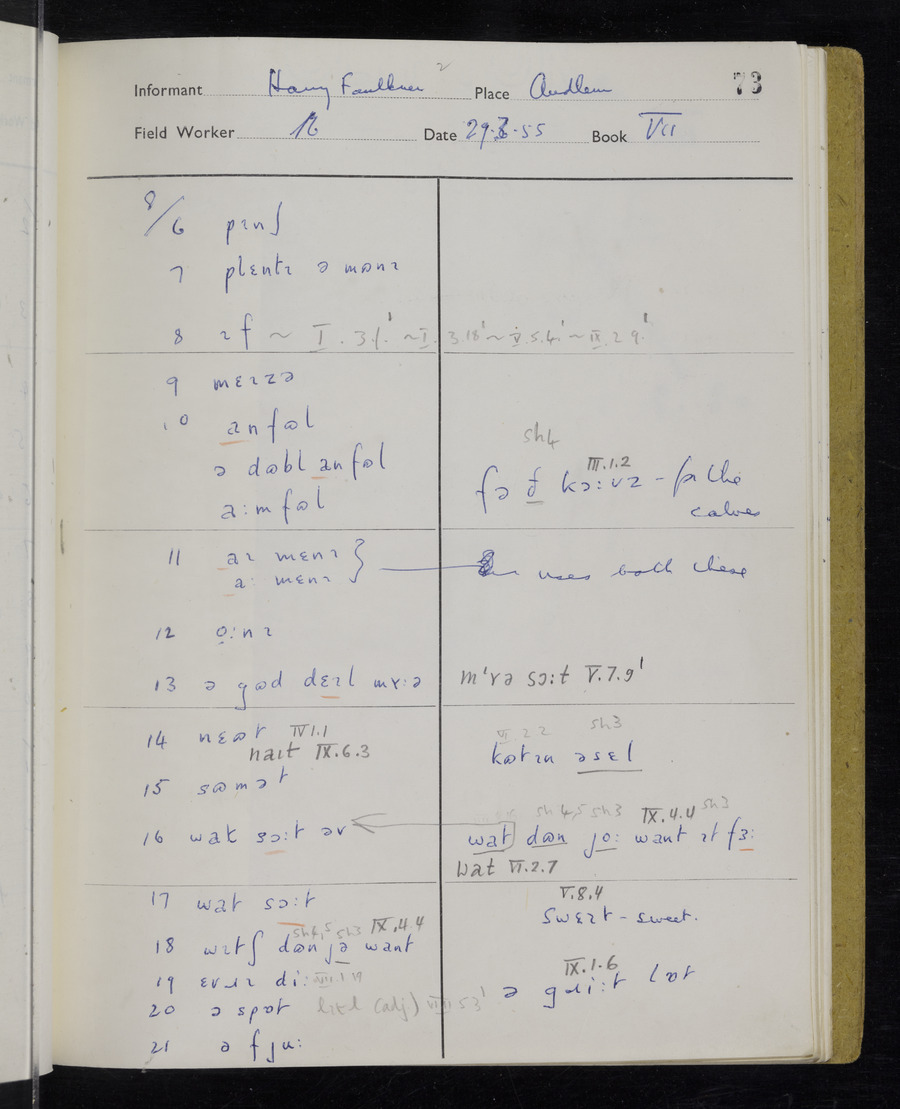 Informant Harry Faulkner 2 Place Audlem 73
Field Worker Date 29.3.55 Book VII
8/6 pɪnʃ
7 plɛntɪ ə mɷnɪ
8 ɪf ~ I.3.1.' ~ I.3.18' ~ V.5.4' ~ IX.2 9.'
9 mɛɪzə
10 anfɷl
sh4
ə dɷbl anfɷl
III.1.2
a:mfɷl
fə ð kɔ:vz – for the
calves
11 aɪ mɛnɪ
a: mɛnɪ
uses both these
12 o:nɪ
13 ə gɷd dɛɪl mɤ:ə
m'ɤə sɔ:t V.7.9'
14 nɛɷt IV.1.1
naɪt IX.6.3
VI 2 2 sh3
kɷtɪn əsɛl
15 sɷmət
16 wat sɔ:t əv
sh4,5 sh3 IX.4.4 sh3
wat dɷn jo: want ɪt fɔ:
wat VI.2.7
17 wat sɔ:t
V.8.4
swɛɪt – sweet.
sh4,5 sh3 IX.4.4
18 wɪtʃ dɷn jə want
19 ɛvɹɪ di: VII.1.19
20 ə spɒt lɪtl (adj) VIII 5 3'
IX.1.6
ə gɹi:t lɒt
21 ə fju: